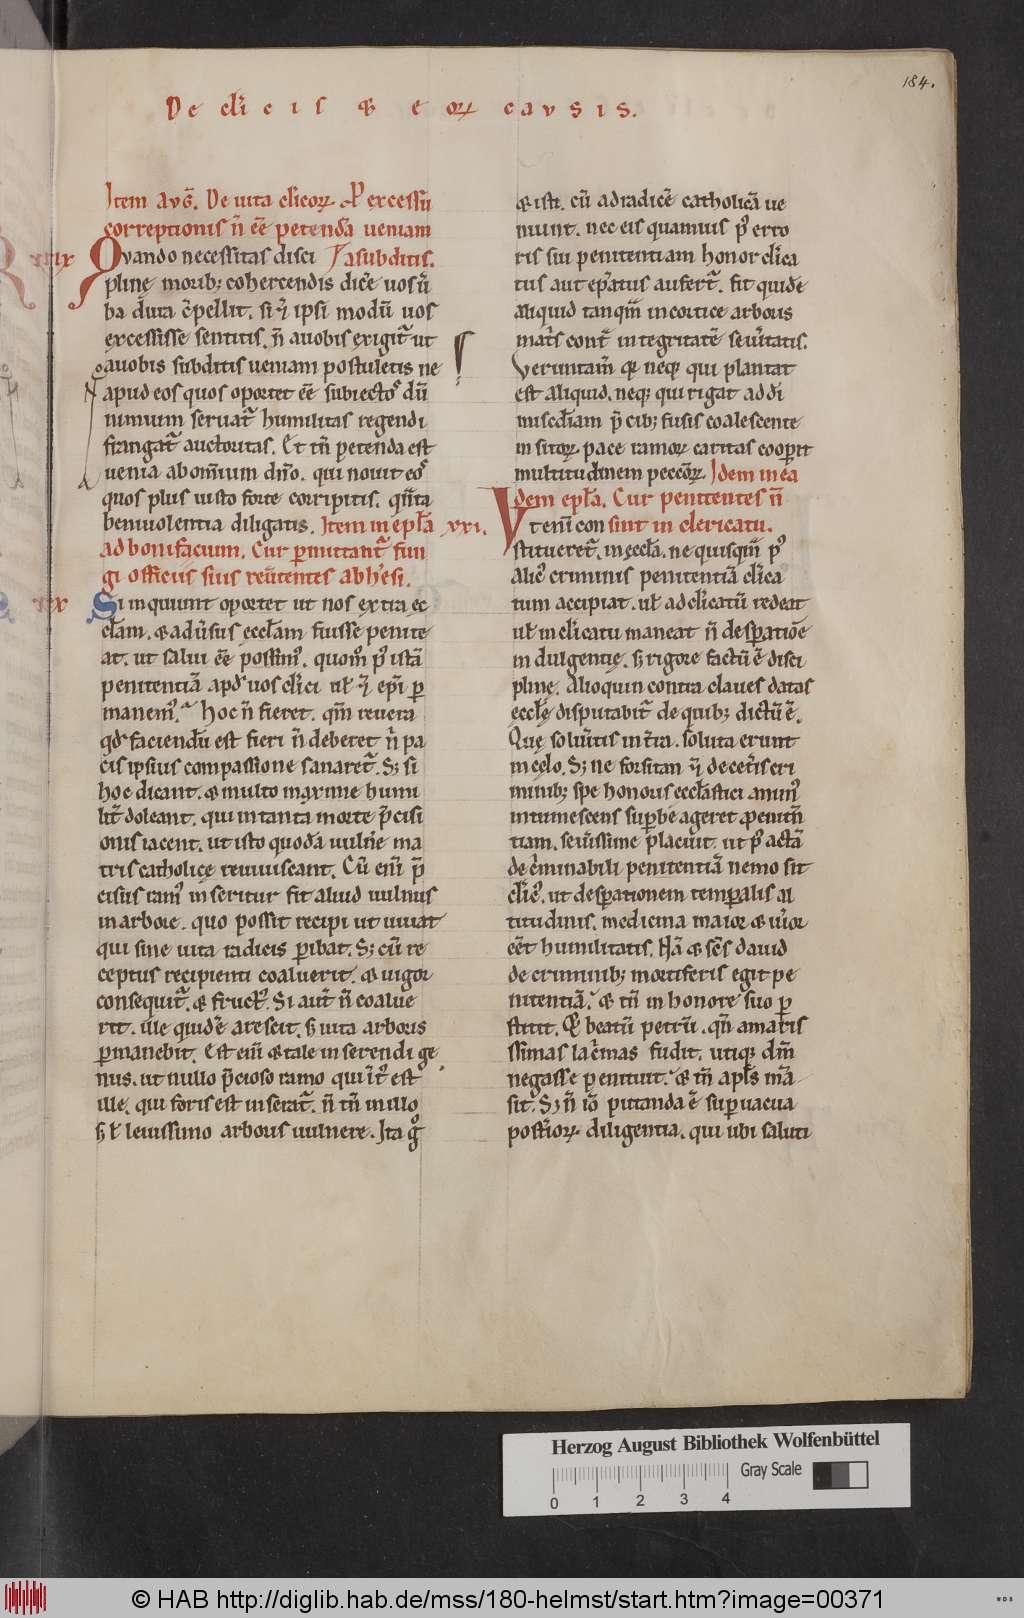 184.
De cl̄i c i s & e oꝝ c a v s i s.
Item Avḡ. De uita cl̄icoꝝ. Ꝙ excessu
correptionis n̄ eē petenda ueniam
xix Quando necessitas disci a subditis.
plinę moribꝫ cohercendis dicēr uos uer
ba dura cōpellit. si & ipsi modū uos
excessisse sentitis. n̄ a uobis exigit̄ ut
a uobis subditis ueniam postuletis ne
apud eos quos oportet eē subiectos dū
nimium seruat̄ humilitas regendi
frangat̄ auctoritas. Et tn̄ petenda est
uenia ab omnium dn̄o. qui nouit eos
quos plus iusto forte corripitis. quanta
beniuolentia diligatis. Item in epl̄a xxi.
ad bonifacium. Cur permittant̄ fun
gi officiis suis reūtentes ab hēsi.
xx Si inquiunt oportet ut nos extra ec
cl̄am. & aduersus eccl̄am fuisse penite
at. ut salui eē possimꝰ. quomō pꝰ istā
penitentiā apd̕ uos cl̄ici ul̄ & ep̄i ꝑ
manemꝰ. Hoc n̄ fieret. qm̄ reuera
qd̕ faciendū est fieri n̄ deberet n̄ pa
cis ipsius compassione sanaret̄. Sꝫ si
hoc dicant. & multo maxime humi
lit̄ doleant. qui in tanta morte p̄cisi
onis iacent. ut isto quodā uulnēre ma
tris catholicę reuiuiscant. Cū eni p̄
cisus ramꝰ inseritur fit aliud uulnus
in arbore. quo possit recipi ut uiuat
qui sine uita radicis ꝑibat. Sꝫ cū re
ceptus recipienti coaluerit. & uigor
consequit̄. & fructꝰ. Si aut̄ n̄ coalue
rit. ille quidē arescit. sꝫ uita arboris
ꝑmanebit. Est eni & tale inserendi ge
nus. ut nullo p̄ciso ramo qui it̄ est
ille. qui foris est inserat̄. n̄ tn̄ nullo
sꝫ l̄ leuissimo arboris uulnere. Ita g̊
& isti. cū ad radicē catholicā ue
niunt. nec eis quamuis pꝰ erro
ris sui penitentiam honor cl̄ica
tus aut ep̄atus aufert̄. fit quidē
aliquid tanqm̄ in cortice arboris
mat̄s cont̄ integritatē seuītatis.
Veruntam̄ qꝫ neqꝫ qui plantat
est aliquid. neqꝫ qui rigat ad di
misc̄diam p̄cibꝫ fusis coalescente
insitoꝝ pace ramoꝝ caritas cooperit
multitudinem pecc̄oꝝ. Idem in ea
dem epl̄a. Cur penitentes n̄
Vt eni con sint in clericatu.
stitueret̄. in ęccl̄a. ne quisqm̄ pꝰ
alicꝰ criminis penitentiā cl̄ica
tum accipiat. ul̄ ad cl̄icatū redeat
ul̄ in cl̄icatu maneat n̄ desꝑatiōe
indulgentię. sꝫ rigore factū ē disci
plinę. Alioquin contra claues datas
eccl̄ę disputabit̄ de quibꝫ dictū ē.
Quę soluitis in t̄ra. soluta erunt
in cęlo. Sꝫ ne forsitan & de cet̄is cri
minibꝫ spe honoris eccl̄astici animꝰ
intumescens suꝑbe ageret penitn̄
tiam. seuīssime placuit. ut pꝰ actā
de c̄minabili penitentiā nemo sit
cl̄icꝰ. ut desꝑationem temꝑalis al
titudinis. medicina maior & uīor
eēt humilitatis. Nā & sc̄s dauid
de criminibꝫ mortiferis egit pe
nitentiā. & tn̄ in honore suo ꝑ
stitit. Et beatū petrū. qn̄ amaris
simas lac̄mas fudit. utiqꝫ dm̄
negasse penituit. & tn̄ apl̄s mā
sit. Sꝫ n̄ iō putanda ē suꝑuacua
posterioꝝ diligentia. qui ubi saluti
Herzog August Bibliothek Wolfenbüttel
Gray Scale
0 1 2 3 4
© HAB http://diglib.hab.de/mss/180-helmst/start.htm?image=00371